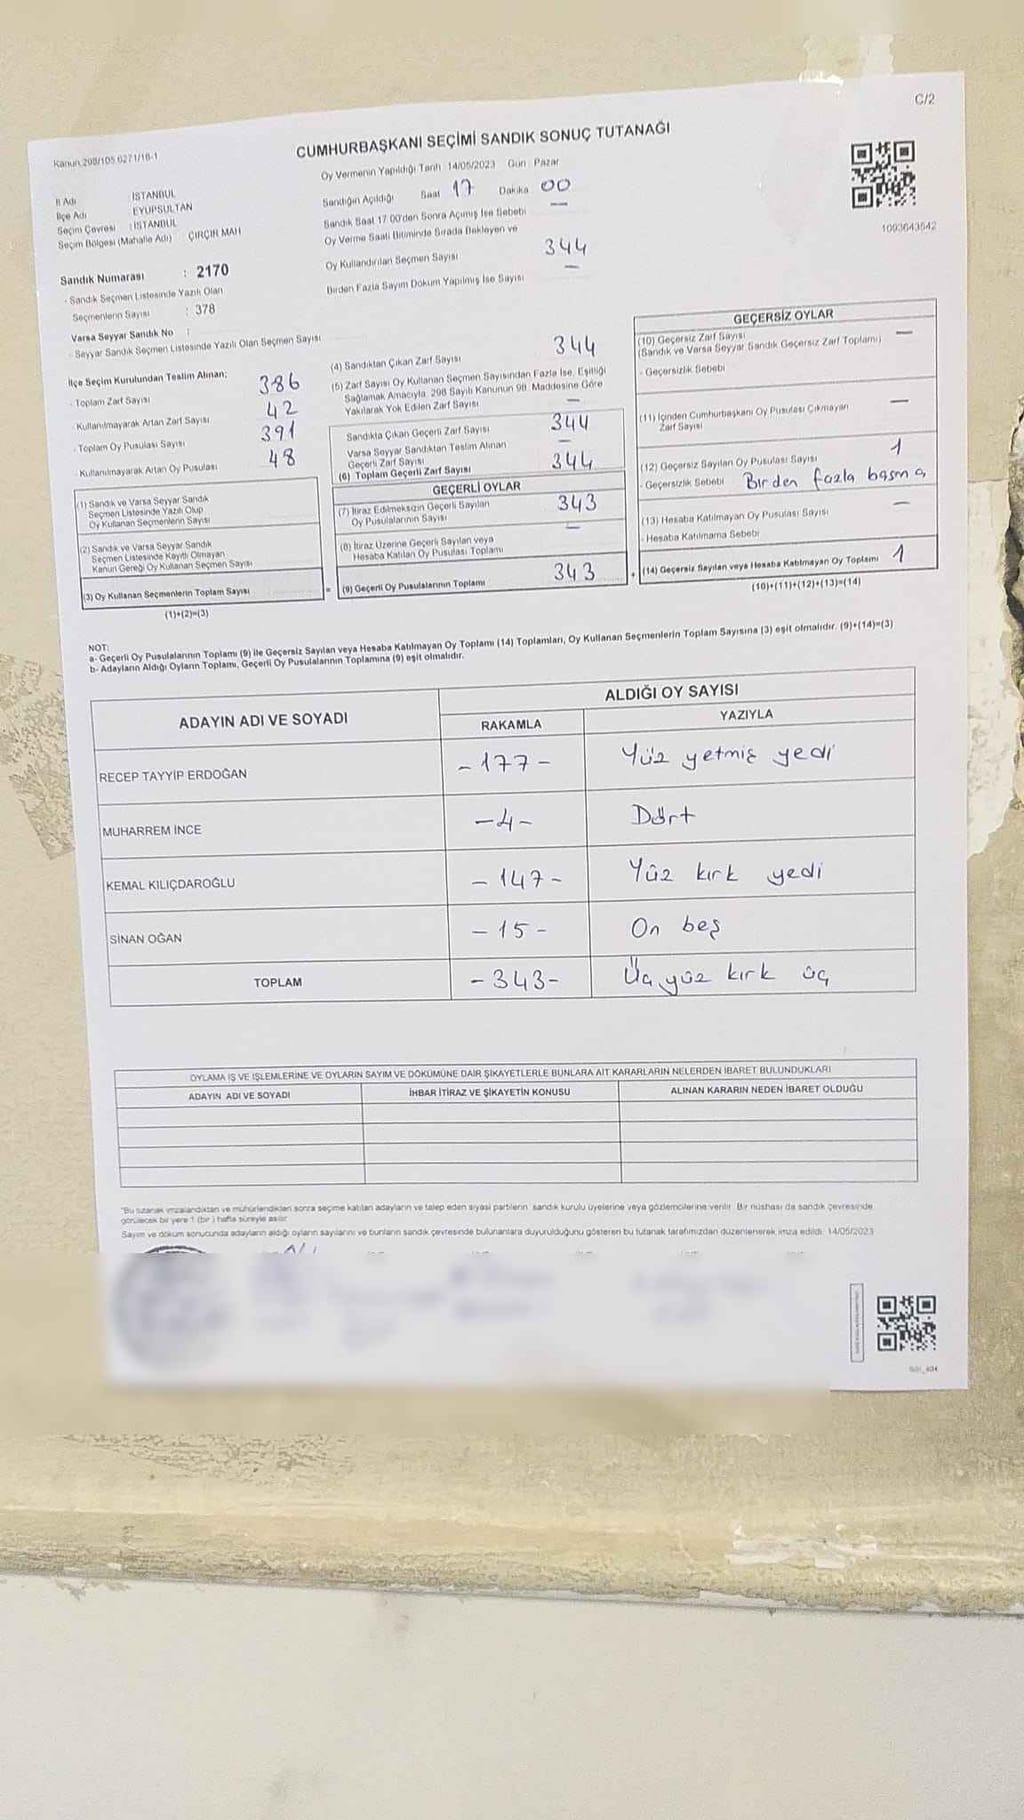 C/2
Kanun 298/105 6271/16-1
CUMHURBAŞKANI SEÇİMİ SANDIK SONUÇ TUTANAĞI
Oy Vermenin Yapıldığı Tarih 14/05/2023 Gün : Pazar
İl Adı : İSTANBUL
İlçe Adı : EYÜPSULTAN
Seçim Çevresi : İSTANBUL
Seçim Bölgesi (Mahalle Adı) ÇIRÇIR MAH
Sandığın Açıldığı Saat 17 Dakika 00
Sandık Saat 17.00'den Sonra Açılmış İse Sebebi —
Oy Verme Saati Bitiminde Sırada Bekleyen ve
Oy Kullandırılan Seçmen Sayısı 344
Birden Fazla Sayım Döküm Yapılmış İse Sayısı —
1093643542
Sandık Numarası : 2170
- Sandık Seçmen Listesinde Yazılı Olan
Seçmenlerin Sayısı : 378
Varsa Seyyar Sandık No :
- Seyyar Sandık Seçmen Listesinde Yazılı Olan Seçmen Sayısı
İlçe Seçim Kurulundan Teslim Alınan;
- Toplam Zarf Sayısı 386
- Kullanılmayarak Artan Zarf Sayısı 42
- Toplam Oy Pusulası Sayısı 391
- Kullanılmayarak Artan Oy Pusulası 48
(1) Sandık ve Varsa Seyyar Sandık
Seçmen Listesinde Yazılı Olup
Oy Kullanan Seçmenlerin Sayısı
(2) Sandık ve Varsa Seyyar Sandık
Seçmen Listesinde Kayıtlı Olmayan
Kanun Gereği Oy Kullanan Seçmen Sayısı
(3) Oy Kullanan Seçmenlerin Toplam Sayısı
(1)+(2)=(3)
(4) Sandıktan Çıkan Zarf Sayısı 344
(5) Zarf Sayısı Oy Kullanan Seçmen Sayısından Fazla İse, Eşitliği
Sağlamak Amacıyla, 298 Sayılı Kanunun 98. Maddesine Göre
Yakılarak Yok Edilen Zarf Sayısı —
Sandıkta Çıkan Geçerli Zarf Sayısı 344
Varsa Seyyar Sandıktan Teslim Alınan
Geçerli Zarf Sayısı —
(6) Toplam Geçerli Zarf Sayısı 344
GEÇERLİ OYLAR
(7) İtiraz Edilmeksizin Geçerli Sayılan
Oy Pusulalarının Sayısı 343
(8) İtiraz Üzerine Geçerli Sayılan veya
Hesaba Katılan Oy Pusulası Toplamı —
= (9) Geçerli Oy Pusulalarının Toplamı 343
GEÇERSİZ OYLAR
(10) Geçersiz Zarf Sayısı —
(Sandık ve Varsa Seyyar Sandık Geçersiz Zarf Toplamı)
- Geçersizlik Sebebi
(11) İçinden Cumhurbaşkanı Oy Pusulası Çıkmayan
Zarf Sayısı —
(12) Geçersiz Sayılan Oy Pusulası Sayısı 1
- Geçersizlik Sebebi Birden fazla basma
(13) Hesaba Katılmayan Oy Pusulası Sayısı —
- Hesaba Katılmama Sebebi
+ (14) Geçersiz Sayılan veya Hesaba Katılmayan Oy Toplamı 1
(10)+(11)+(12)+(13)=(14)
NOT:
a- Geçerli Oy Pusulalarının Toplamı (9) ile Geçersiz Sayılan veya Hesaba Katılmayan Oy Toplamı (14) Toplamları, Oy Kullanan Seçmenlerin Toplam Sayısına (3) eşit olmalıdır. (9)+(14)=(3)
b- Adayların Aldığı Oyların Toplamı, Geçerli Oy Pusulalarının Toplamına (9) eşit olmalıdır.
ADAYIN ADI VE SOYADI
ALDIĞI OY SAYISI
RAKAMLA YAZIYLA
RECEP TAYYİP ERDOĞAN -177- Yüz yetmiş yedi
MUHARREM İNCE -4- Dört
KEMAL KILIÇDAROĞLU -147- Yüz kırk yedi
SİNAN OĞAN -15- On beş
TOPLAM -343- Üç yüz kırk üç
OYLAMA İŞ VE İŞLEMLERİNE VE OYLARIN SAYIM VE DÖKÜMÜNE DAİR ŞİKAYETLERLE BUNLARA AİT KARARLARIN NELERDEN İBARET BULUNDUKLARI
ADAYIN ADI VE SOYADI İHBAR İTİRAZ VE ŞİKAYETİN KONUSU ALINAN KARARIN NEDEN İBARET OLDUĞU
"Bu tutanak imzalandıktan ve mühürlendikten sonra seçime katılan adayların ve talep eden siyasi partilerin sandık kurulu üyelerine veya gözlemcilerine verilir. Bir nüshası da sandık çevresinde
görülecek bir yere 1 (bir) hafta süreyle asılır
Sayım ve döküm sonucunda adayların aldığı oyların sayılarını ve bunların sandık çevresinde bulunanlara duyurulduğunu gösteren bu tutanak tarafımızdan düzenlenerek imza edildi. 14/05/2023